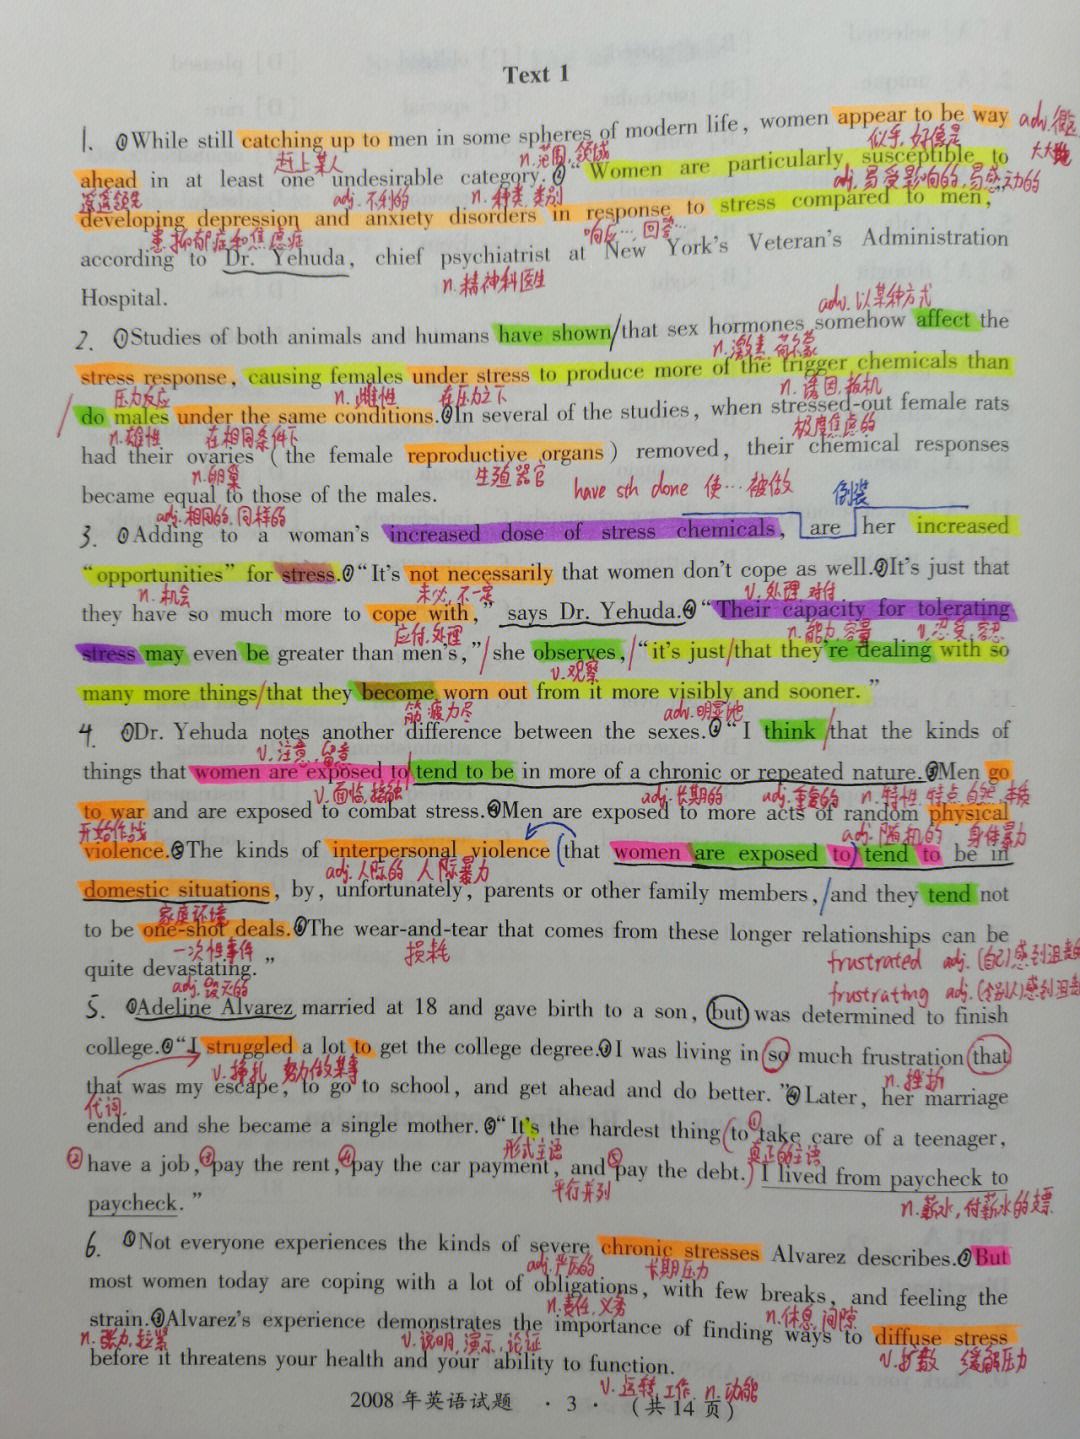 Text 1
1. ①While still catching up to men in some spheres of modern life, women appear to be way adv.很远
赶上某人 n.范围,领域 似乎,好像是 大大地
ahead in at least one undesirable category. ②“Women are particularly susceptible to
遥遥领先 adj.不利的 n.种类,类别 adj.易受影响的,易感动的
developing depression and anxiety disorders in response to stress compared to men,”
患抑郁症和焦虑症 响应…,回答…
according to Dr. Yehuda, chief psychiatrist at New York’s Veteran’s Administration
n.精神科医生
Hospital.
adv.以某种方式
2. ①Studies of both animals and humans have shown/that sex hormones somehow affect the
n.激素,荷尔蒙
stress response, causing females under stress to produce more of the trigger chemicals than
压力反应 n.雌性 在压力之下 n.诱因,扳机
do males under the same conditions. ②In several of the studies, when stressed-out female rats
n.雄性 在相同条件下 极度焦虑的
had their ovaries (the female reproductive organs) removed, their chemical responses
n.卵巢 生殖器官
became equal to those of the males. have sth done 使…被做 倒装
adj.相同的,同样的
3. ①Adding to a woman’s increased dose of stress chemicals, are her increased
“opportunities” for stress. ②“It’s not necessarily that women don’t cope as well. ③It’s just that
n.机会 未必,不一定 v.处理,对付
they have so much more to cope with,” says Dr. Yehuda. ④“Their capacity for tolerating
应付,处理 n.能力,容量 v.忍受,容忍
stress may even be greater than men’s,”/she observes,/“it’s just/that they’re dealing with so
v.观察
many more things/that they become worn out from it more visibly and sooner.”
筋疲力尽 adv.明显地
4. ①Dr. Yehuda notes another difference between the sexes. ②“I think/that the kinds of
v.注意,留意
things that women are exposed to tend to be in more of a chronic or repeated nature. ③Men go
v.面临,接触 adj.长期的 adj.重复的 n.特性,特点,自然,本质
to war and are exposed to combat stress. ④Men are exposed to more acts of random physical
开始作战 adj.随机的 身体暴力
violence. ⑤The kinds of interpersonal violence (that women are exposed to) tend to be in
adj.人际的 人际暴力
domestic situations, by, unfortunately, parents or other family members,/and they tend not
家庭环境
to be one-shot deals. ⑥The wear-and-tear that comes from these longer relationships can be
一次性事件 损耗
quite devastating.” frustrated adj.(自己)感到沮丧的
adj.毁灭的 frustrating adj.(令别人)感到沮丧
5. ①Adeline Alvarez married at 18 and gave birth to a son, but was determined to finish
college. ②“I struggled a lot to get the college degree. ③I was living in so much frustration that
v.挣扎 努力做某事 n.挫折
that was my escape, to go to school, and get ahead and do better.” ④Later, her marriage
代词.
ended and she became a single mother. ⑤“It’s the hardest thing (to ①take care of a teenager,
形式主语 真正的主语
②have a job, ③pay the rent, ④pay the car payment, and ⑤pay the debt.) I lived from paycheck to
平行并列
paycheck.” n.薪水,付薪水的支票
6. ①Not everyone experiences the kinds of severe chronic stresses Alvarez describes. ②But
adj.严厉的 长期压力
most women today are coping with a lot of obligations, with few breaks, and feeling the
n.责任,义务 n.休息,间隙
strain. ③Alvarez’s experience demonstrates the importance of finding ways to diffuse stress
n.张力,拉紧 v.说明,演示,论证 v.扩散 缓解压力
before it threatens your health and your ability to function.
v.运转,工作 n.功能
2008 年英语试题 · 3 · (共 14 页)